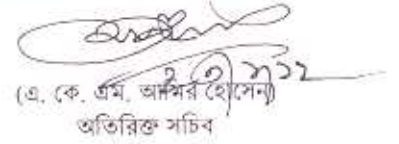 (এ. কে. এম. আমির হোসেন)
অতিরিক্ত সচিব